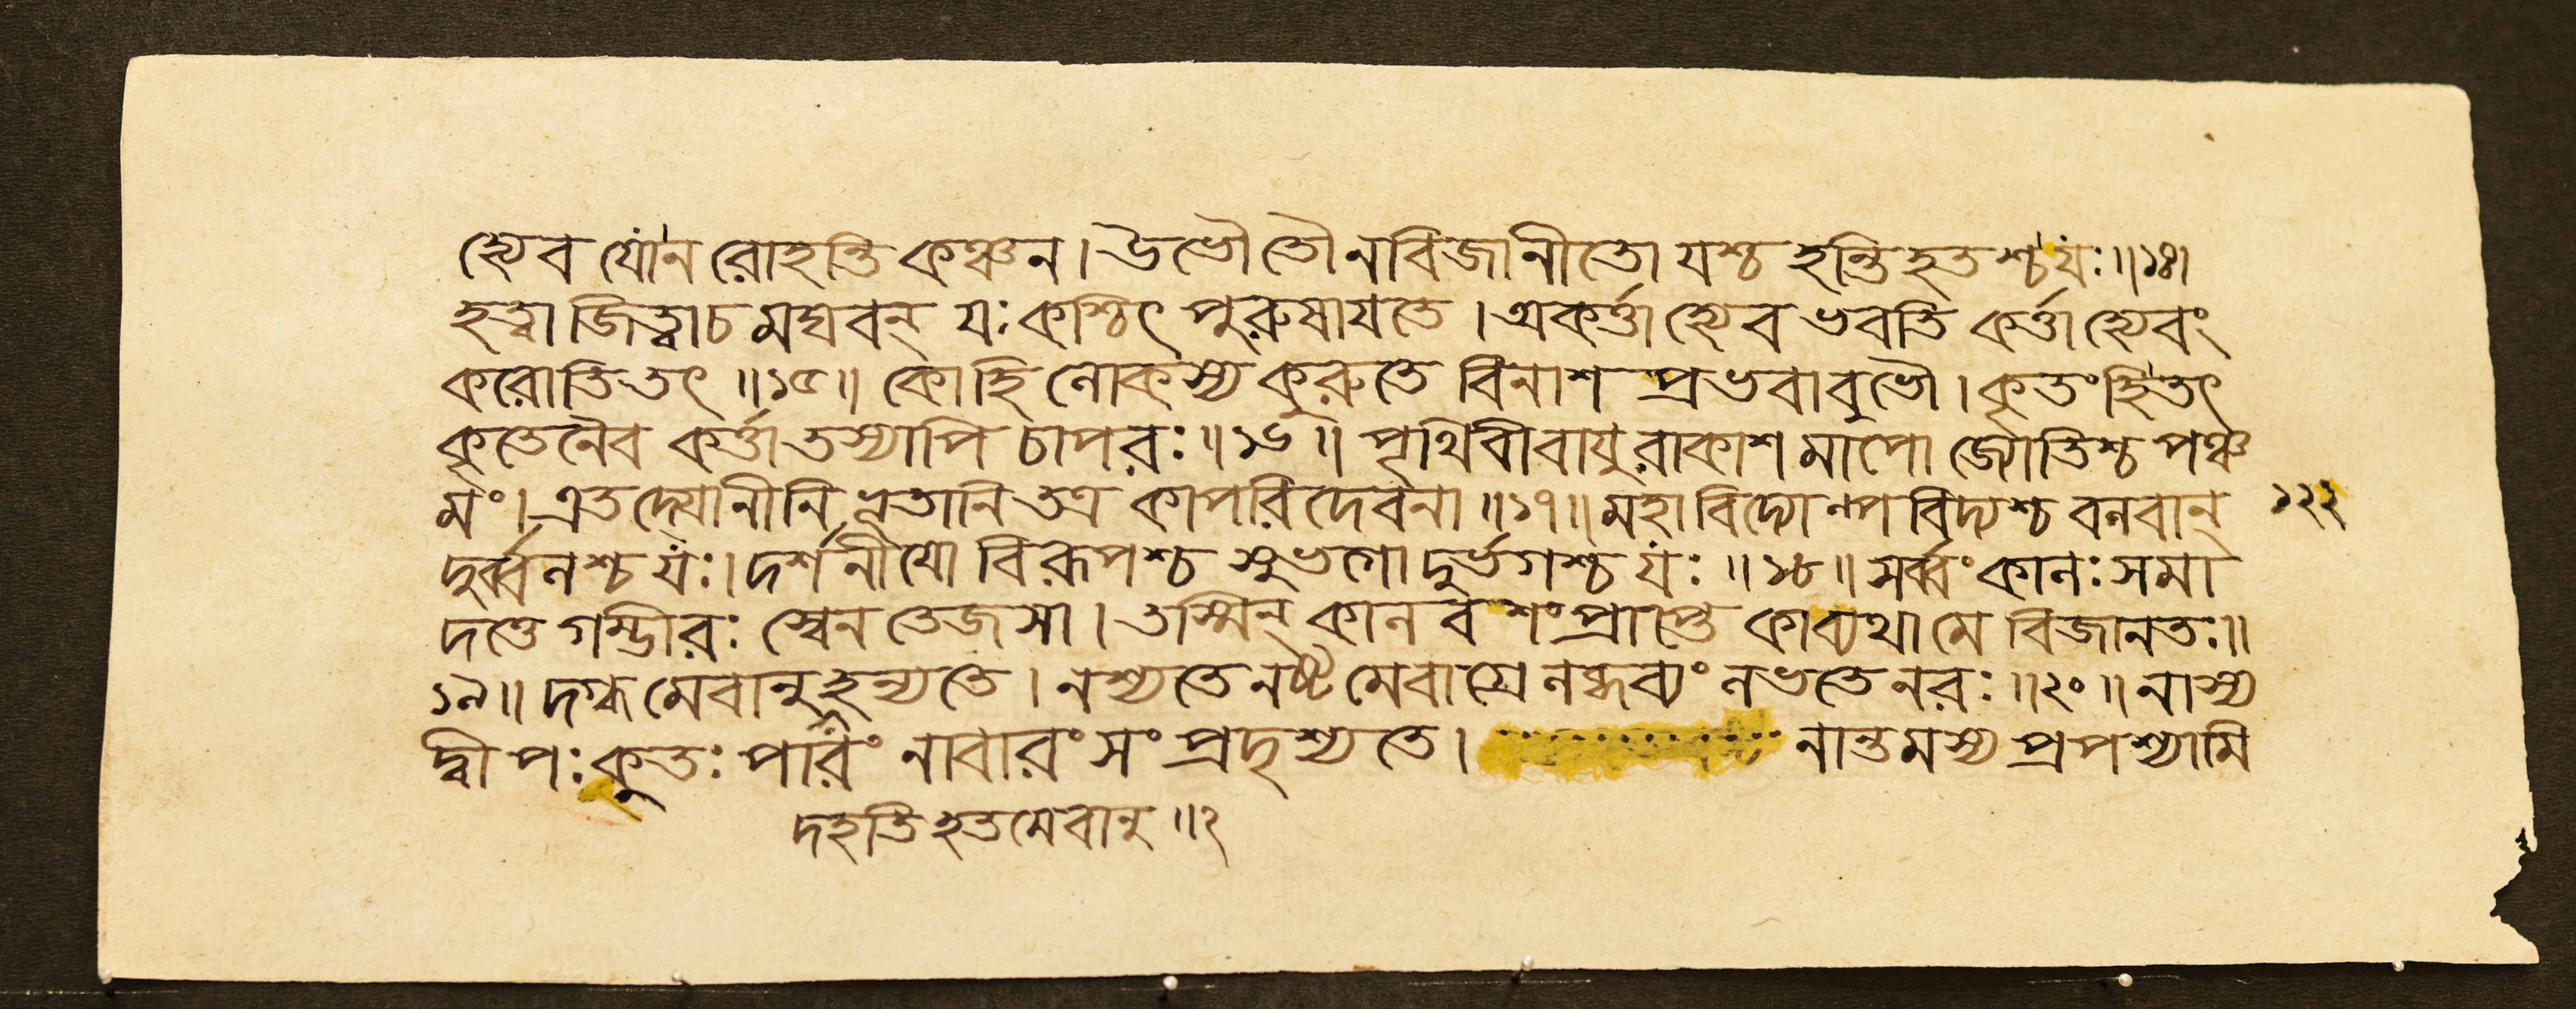 হ্যেব যো নরো হন্তি কঞ্চন। উভৌ তৌ ন বিজানীতো যশ্চ হন্তি হতশ্চ যঃ॥১৪।
হত্বা জিত্বা চ মঘবন্ যঃ কশ্চিৎ পুরুষাযতে। অকর্ত্তা হ্যেব ভবতি কর্ত্তা হ্যেবং
করোতি তৎ॥১৫॥ কো হি লোকস্য কুরুতে বিনাশপ্রভবাবুভৌ। কৃতং হি তৎ
কৃতেনৈব কর্ত্তা তস্যাপি চাপরঃ॥১৬॥ পৃথিবী বাযুরাকাশমাপো জ্যোতিশ্চ পঞ্চ
মং। এতদ্যোনীনি ভূতানি তত্র কা পরিদেবনা॥১৭॥ মহাবিদ্যোঽল্পবিদ্যশ্চ বলবান্ ১২২
দুর্ব্বলশ্চ যঃ। দর্শনীযো বিরূপশ্চ সুভগো দুর্ভগশ্চ যঃ॥১৮॥ সর্ব্বং কালঃ সমা
দত্তে গম্ভীরঃ স্বেন তেজসা। তস্মিন্ কালবশং প্রাপ্তে কা ব্যথা মে বিজানতঃ॥
১৯॥ দগ্ধমেবানু হন্যতে। নশ্যতে নষ্টমেবাগ্রে লব্ধব্যং লভতে নরঃ॥২০॥ নাস্য
দ্বীপঃ কুতঃ পারং নাবারং সংপ্রদৃশ্যতে। নান্তমস্য প্রপশ্যামি
দহতি হতমেবানু॥২